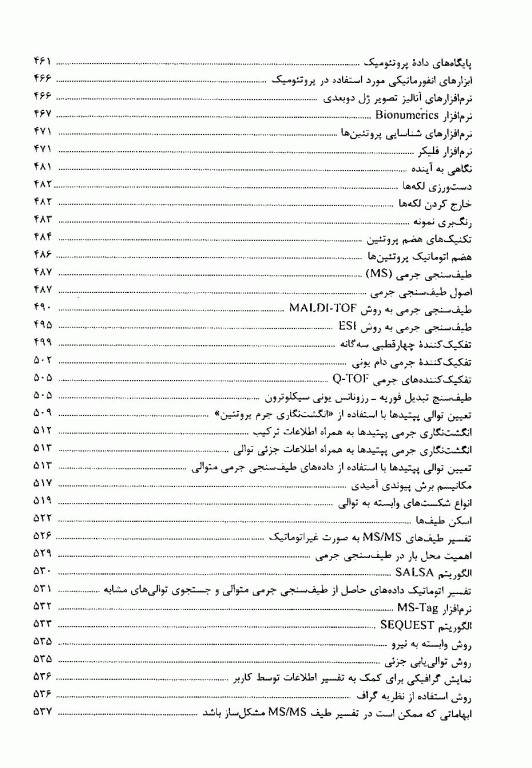 پایگاه‌های دادهٔ پروتئومیک ........ ۴۶۱
ابزارهای انفورماتیکی مورد استفاده در پروتئومیک ........ ۴۶۶
نرم‌افزارهای آنالیز تصویر ژل دوبعدی ........ ۴۶۶
نرم‌افزار Bionumerics ........ ۴۶۷
نرم‌افزارهای شناسایی پروتئین‌ها ........ ۴۷۱
نرم‌افزار فلیکر ........ ۴۷۱
نگاهی به آینده ........ ۴۸۱
دست‌ورزی لکه‌ها ........ ۴۸۲
خارج کردن لکه‌ها ........ ۴۸۲
رنگ‌بری نمونه ........ ۴۸۳
تکنیک‌های هضم پروتئین ........ ۴۸۴
هضم اتوماتیک پروتئین‌ها ........ ۴۸۶
طیف‌سنجی جرمی (MS) ........ ۴۸۷
اصول طیف‌سنجی جرمی ........ ۴۸۷
طیف‌سنجی جرمی به روش MALDI-TOF ........ ۴۹۰
طیف‌سنجی جرمی به روش ESI ........ ۴۹۵
تفکیک‌کنندهٔ چهارقطبی سه‌گانه ........ ۴۹۹
تفکیک‌کنندهٔ جرمی دام یونی ........ ۵۰۲
تفکیک‌کننده‌های جرمی Q-TOF ........ ۵۰۵
طیف‌سنج تبدیل فوریه ـ رزونانس یونی سیکلوترون ........ ۵۰۵
تعیین توالی پپتیدها با استفاده از «انگشت‌نگاری جرم پروتئین» ........ ۵۰۹
انگشت‌نگاری جرمی پپتیدها به همراه اطلاعات ترکیب ........ ۵۱۲
انگشت‌نگاری جرمی پپتیدها به همراه اطلاعات جزئی توالی ........ ۵۱۳
تعیین توالی پپتیدها با استفاده از داده‌های طیف‌سنجی جرمی متوالی ........ ۵۱۳
مکانیسم برش پیوندی آمیدی ........ ۵۱۷
انواع شکست‌های وابسته به توالی ........ ۵۱۹
اسکن طیف‌ها ........ ۵۲۲
تفسیر طیف‌های MS/MS به صورت غیراتوماتیک ........ ۵۲۶
اهمیت محل بار در طیف‌سنجی جرمی ........ ۵۲۹
الگوریتم SALSA ........ ۵۳۰
تفسیر اتوماتیک داده‌های حاصل از طیف‌سنجی جرمی متوالی و جستجوی توالی‌های مشابه ........ ۵۳۱
نرم‌افزار MS-Tag ........ ۵۳۲
الگوریتم SEQUEST ........ ۵۳۳
روش وابسته به نیرو ........ ۵۳۵
روش توالی‌یابی جزئی ........ ۵۳۵
نمایش گرافیکی برای کمک به تفسیر اطلاعات توسط کاربر ........ ۵۳۶
روش استفاده از نظریه گراف ........ ۵۳۶
ابهاماتی که ممکن است در تفسیر طیف MS/MS مشکل‌ساز باشد ........ ۵۳۷